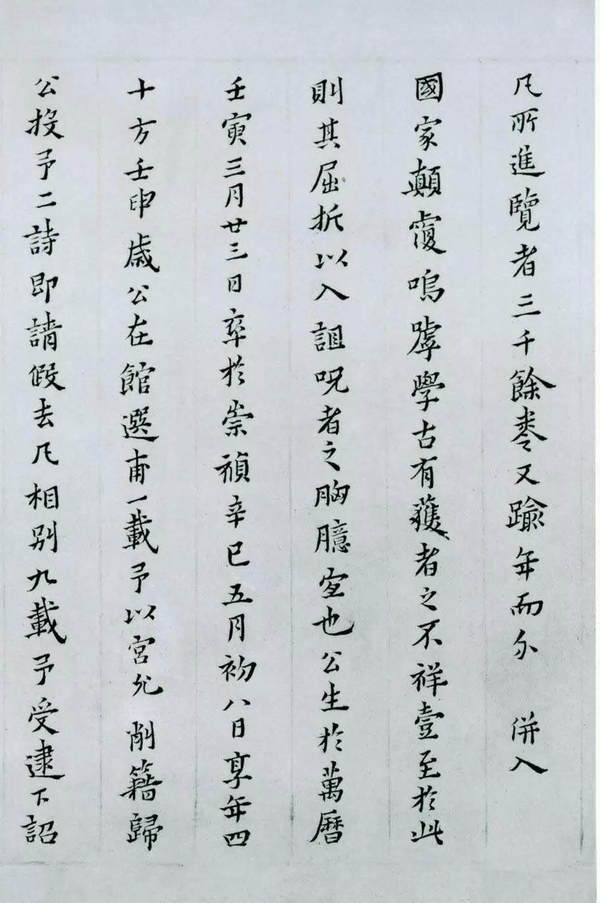 凡所進覽者三千餘卷又踰年而分 併入
國家顛覆嗚嘑學古有獲者之不祥壹至於此
則其屈折以入詛呪者之胸臆宜也公生於萬曆
壬寅三月廿三日卒於崇禎辛巳五月初八日享年四
十方壬申歲公在館選甫一載予以宮允 削籍歸
公投予二詩即請假去凡相別九載予受逮下詔